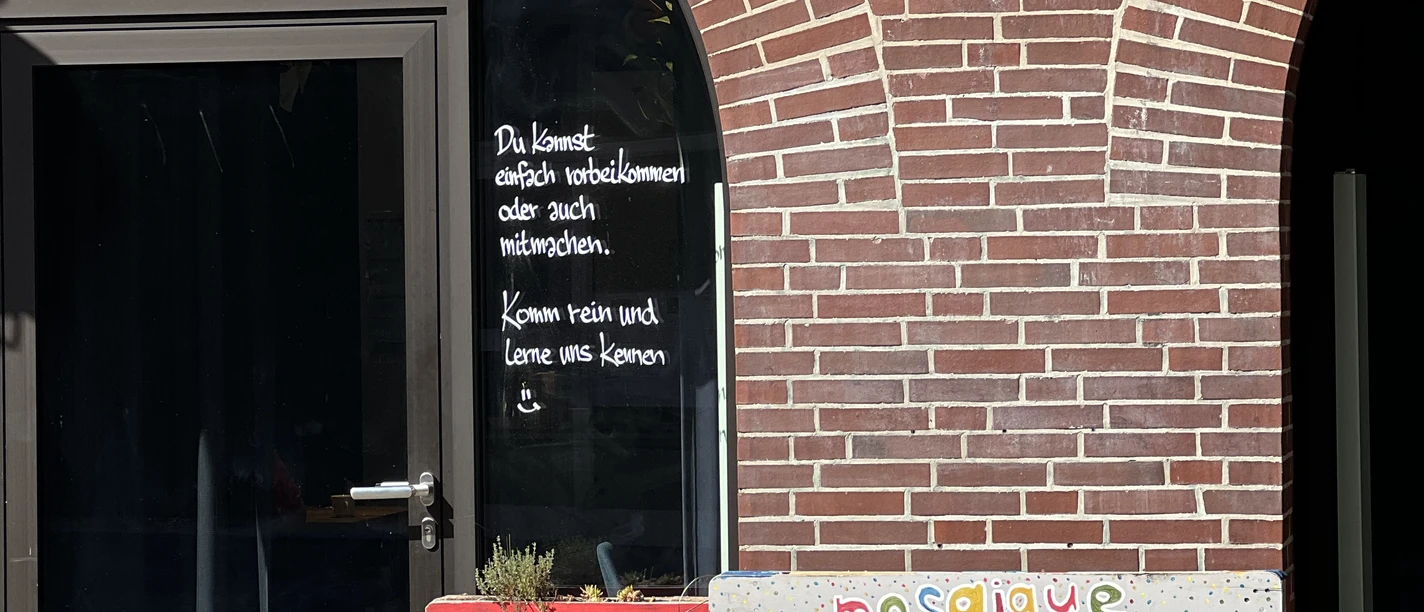 Du kannst
einfach vorbeikommen
oder auch
mitmachen.
Komm rein und
lerne uns kennen
mosaique